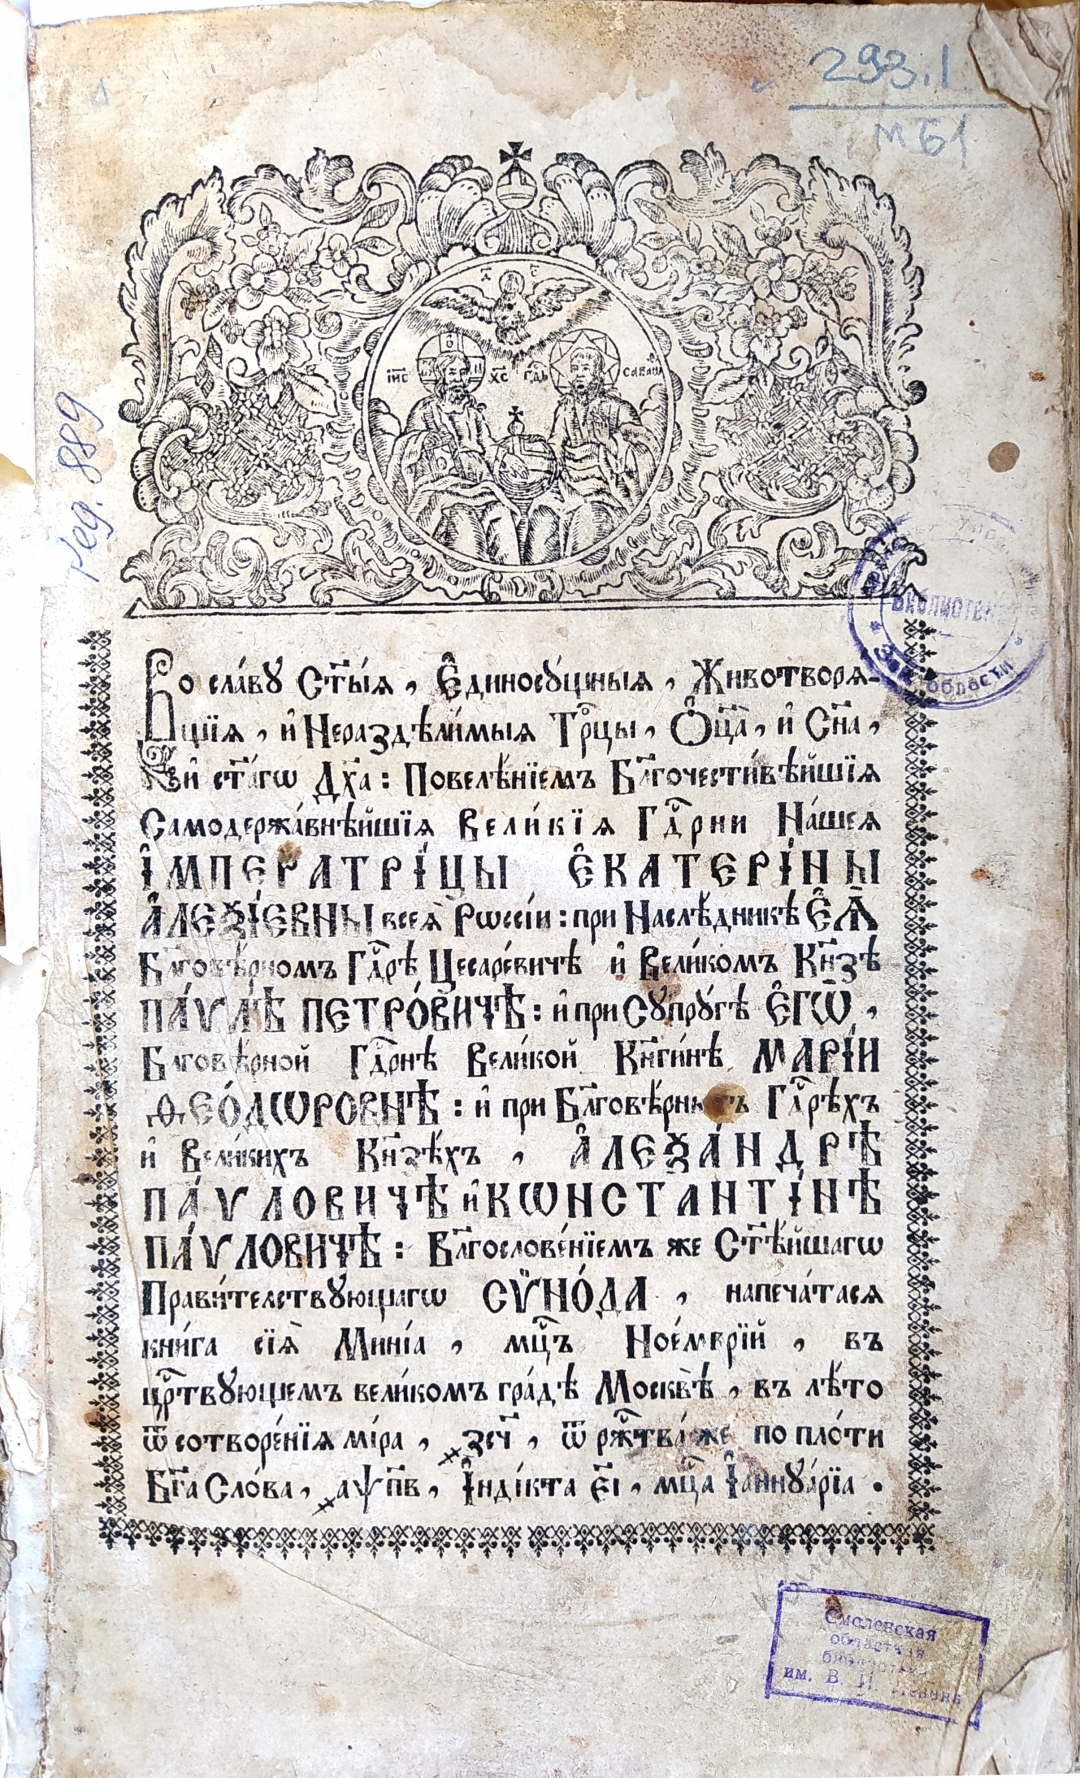 293.1
М61
Х С
ІИ҃С ХС҃ ГДЬ САВАѠ
Рег. 889
БИБЛИОТЕКА
Зап области
Во сла́вꙋ Ст҃ы́ѧ , Є҆диносꙋ́щныѧ , Животворѧ́-
щїѧ , и҆ Нераздѣли́мыѧ Трⷪ҇цы , Ѻ҆ц҃а̀ , и҆ Сн҃а ,
и҆ ст҃а́гѡ Дх҃а : Повелѣ́нїемъ Бл҃гочести́вѣйшїѧ
Самодержа́внѣйшїѧ Вели́кїѧ Гдⷭ҇рни На́шеѧ
І҆МПЕРАТРІ́ЦЫ Є҆КАТЕРІ́НЫ
А҆ЛЕѮІ́ЕВНЫ всеѧ̀ Рѡссі́и : при Наслѣ́дникѣ Є҆Ѧ̀
Бл҃говѣ́рномъ Гдⷭ҇рѣ Цесаре́вичѣ и҆ Вели́комъ Кн҃зѣ
ПА́ѴЛѢ ПЕТРО́ВИЧѢ : и҆ при Сꙋпрꙋ́гѣ Є҆ГѠ̀ ,
Бл҃говѣ́рной Гдⷭ҇рнѣ Вели́кой Кн҃ги́нѣ МАРІ́И
ѲЕО́ДѠРОВНѢ : и҆ при Бл҃говѣ́рныхъ Гдⷭ҇рѣхъ
и҆ Вели́кихъ Кн҃зѣ́хъ , А҆ЛЕѮА́НДРѢ
ПА́ѴЛОВИЧѢ и҆ КѠНСТАНТІ́НѢ
ПА́ѴЛОВИЧѢ : Бл҃гослове́нїемъ же Ст҃ѣ́йшагѡ
Прави́телствꙋющагѡ СѴНО́ДА , напеча́тасѧ
кни́га сїѧ̀ Минї́а , мцⷭ҇ъ Ное́мврїй , въ
црⷭ҇твꙋющемъ вели́комъ гра́дѣ Москвѣ̀ , въ лѣ́то
ѿ сотворе́нїѧ мі́ра , ҂зсч҃ , ѿ ржⷭ҇тва́ же по пло́ти
Бг҃а Сло́ва , ҂аѱп҃в , І҆ндї́кта є҃і , мцⷭ҇а І҆аннꙋа́рїа .
Смоленская
областная
библиотека
им. В. И. Ленина